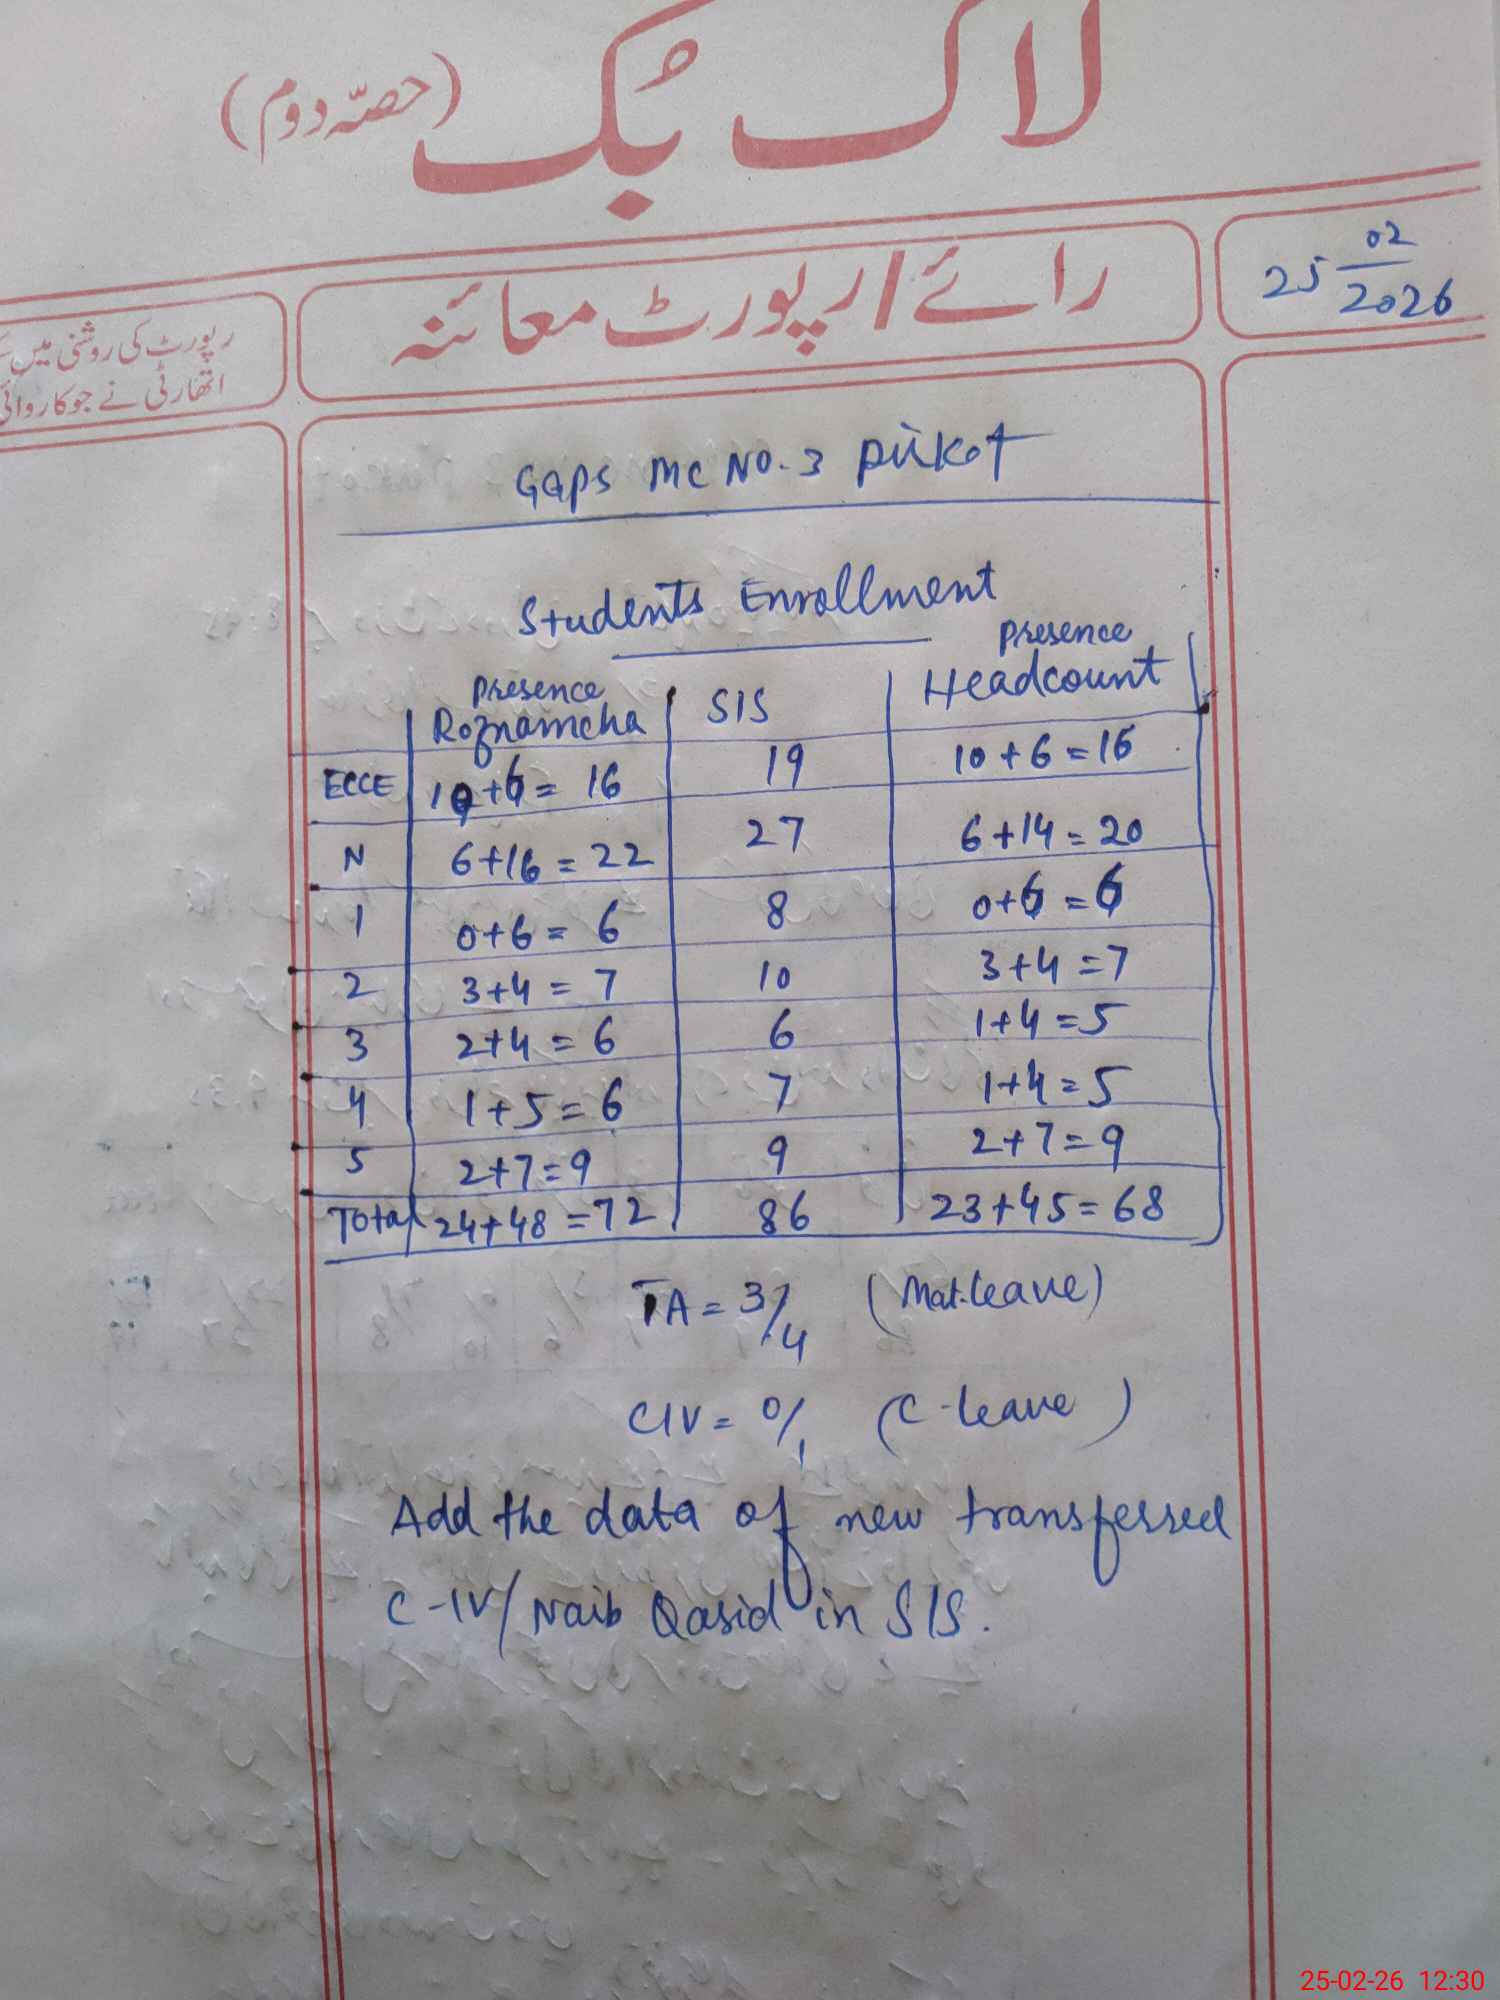 لاگ بُک (حصّہ دوم)
25 02/2026
رائے / رپورٹ معائنہ
رپورٹ کی روشنی میں
اتھارٹی نے جو کاروائی
GGPS MC NO.3 Dijkot
Students Enrollment
Presence Roznamcha | SIS | Presence Headcount
ECCE | 10+6= 16 | 19 | 10+6=16
N | 6+16=22 | 27 | 6+14=20
1 | 0+6= 6 | 8 | 0+6=6
2 | 3+4= 7 | 10 | 3+4=7
3 | 2+4= 6 | 6 | 1+4=5
4 | 1+5=6 | 7 | 1+4=5
5 | 2+7=9 | 9 | 2+7=9
Total | 24+48=72 | 86 | 23+45=68
TA = 3/4 (Mat.leave)
CIV = 0/1 (C-leave)
Add the data of new transferred
C-IV/Naib Qasid in SIS.
25-02-26 12:30